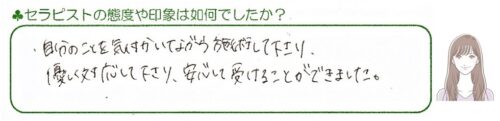 ♣セラピストの態度や印象は如何でしたか？
・自分のことを気付かいながら施術して下さり、
優しく対応して下さり、安心して受けることができました。